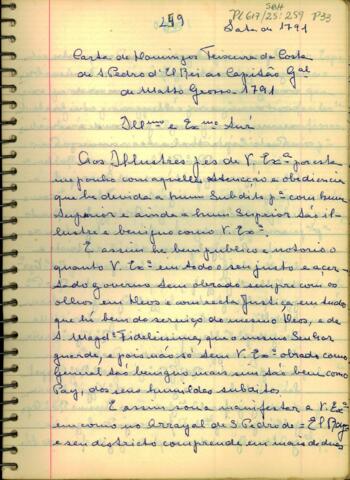 259
SBH
Pl 617/25:259 P33
Data de 1791
Carta de Domingos Teixeira da Costa
de S. Pedro d'El Rei ao Capitão Gal
de Matto Grosso 1791
Illmo e Exmo Snr
Aos Illustres pes de V. Exa por esta
me ponho com aquella attencção e obidiencia
que he devida a hum Subdito pa com hum
Superior e ainda a hum Superior tão il-
lustre e benigno como V. Exa.
E assim he bem publico e notorio o
quanto V. Exa em todo o seu justo e acer-
tado governo tem obrado sempre com os
olhos em Deos e com recta Justiça, em tudo
que hé bem do serviço do mesmo Deos, e de
S. Magde Fidelissima, que o mesmo Senhor
guarde, e pois não só tem V. Exa obrado como
General tão benigno mais sim tão bem como
Pay, dos seus humildes subditos.
E assim sou a manifestar a V. Exa
em como no Arrayal de S Pedro de = El Rey
e seu districto comprende em mais de dous